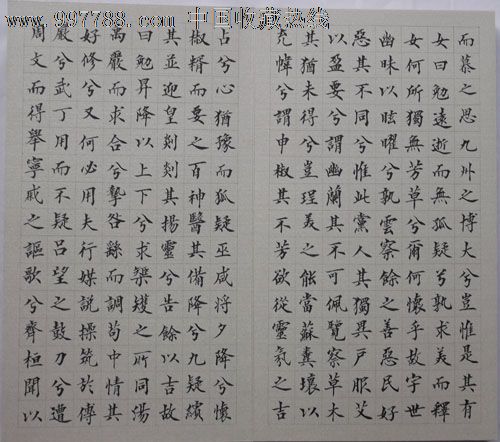 www.997788.com 中国收藏热线
而慕之思九州之博大兮豈惟是其有
女曰勉遠逝而無狐疑兮孰求美而釋
女何所獨無芳草兮爾何懷乎故宇世
幽昧以眩曜兮孰雲察餘之善惡民好
惡其不同兮惟此黨人其獨異戶服艾
以盈要兮謂幽蘭其不可佩覽察草木
其猶未得兮豈珵美之能當蘇糞壤以
充幃兮謂申椒其不芳欲從靈氛之吉
占兮心猶豫而狐疑巫咸將夕降兮懷
椒糈而要之百神醫其備降兮九疑繽
其並迎皇剡剡其揚靈兮告餘以吉故
曰勉昇降以上下兮求榘矱之所同湯
禹嚴而求合兮摯咎繇而調苟中情其
好修兮又何必用夫行媒說操筑於傅
巖兮武丁用而不疑呂望之鼓刀兮遭
周文而得舉寧戚之謳歌兮齊桓聞以